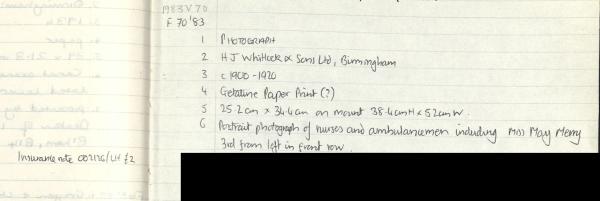 1983V70
F70'83
1 PHOTOGRAPH
2 H J Whitlock & Sons Ltd, Birmingham
3 c1900-1920
4 Gelatine Paper Print (?)
5 25.2cm x 34.4cm on mount 38.4cmH x 52cmW.
6 Portrait photograph of nurses and ambulancemen including Miss May Merry
3rd from left in front row.
Insurance note 002126/LH £2